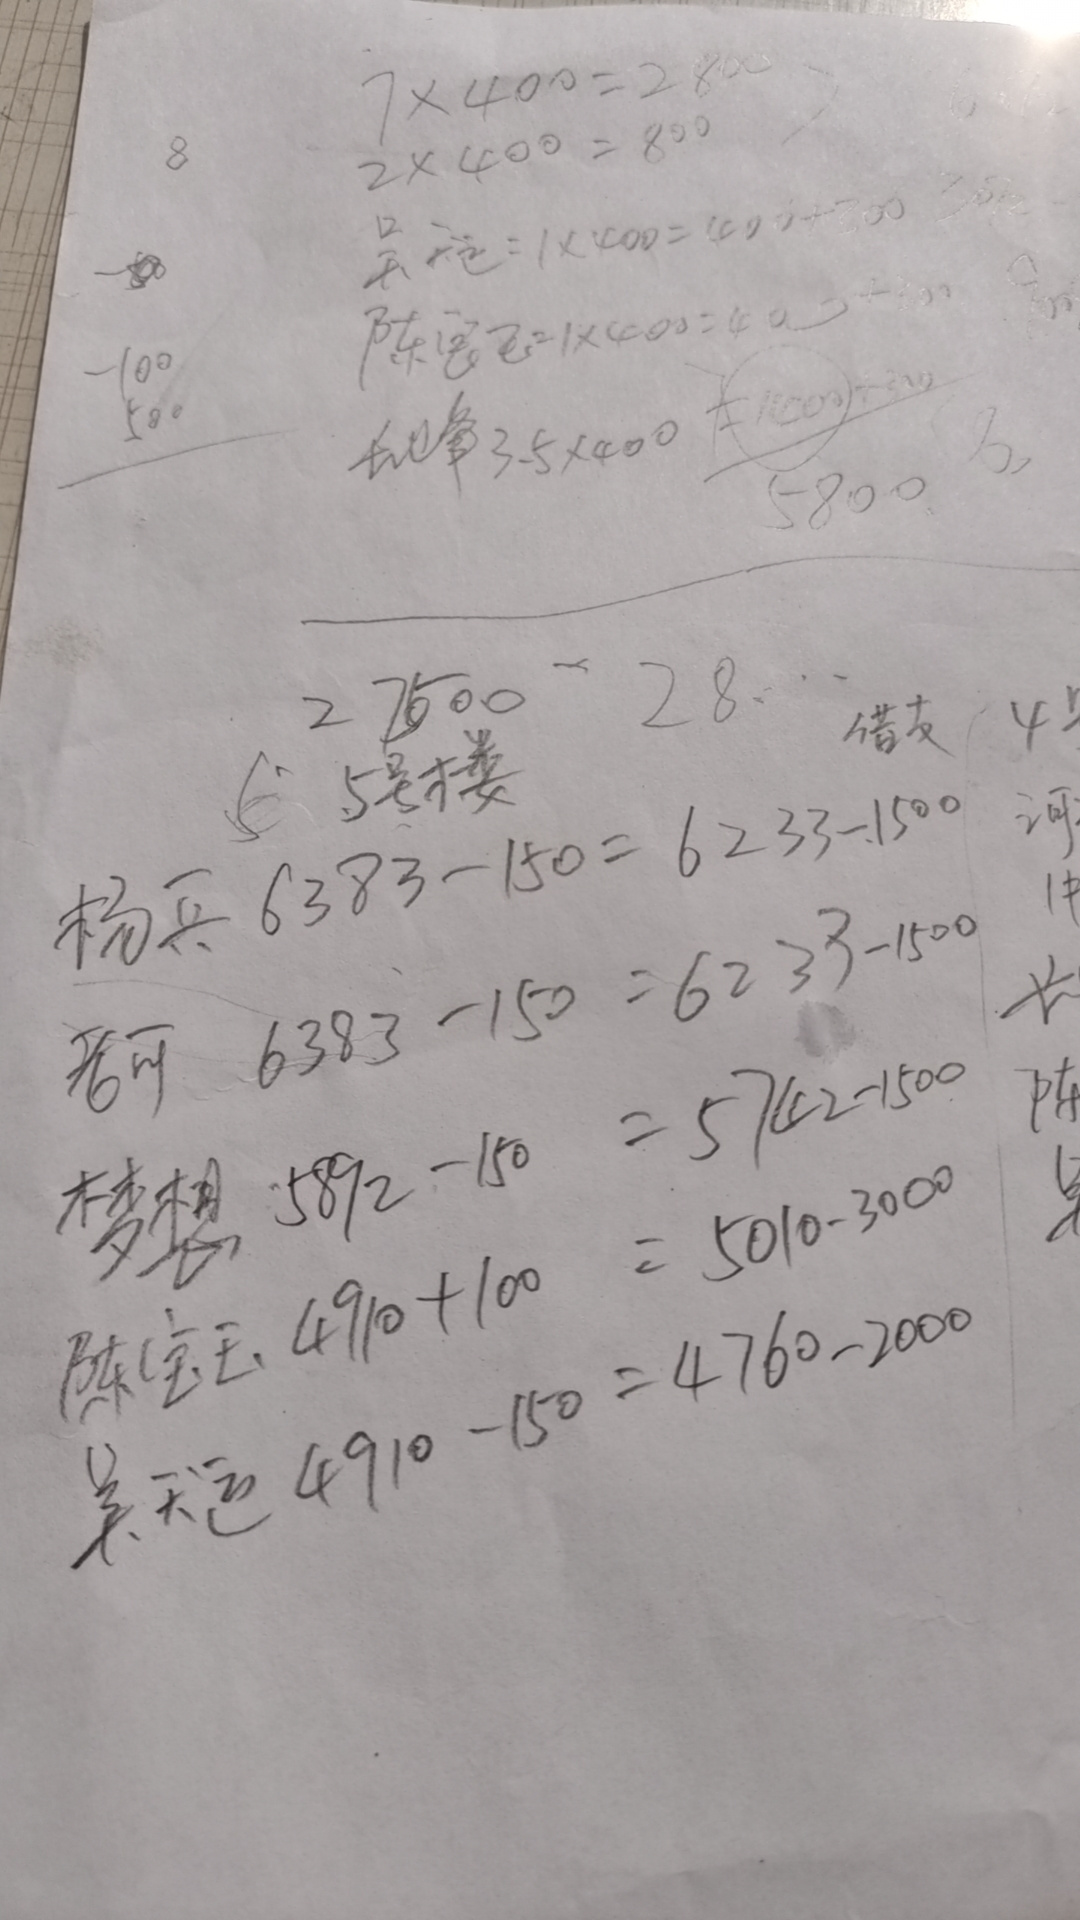 7×400=2800
2×400=800
8
吴天=1×400=400+300
陈宝玉=1×400=400+300
-100
500
3.5×400 =1400+300
5800
27500 - 28...
借支 4号
5号楼
杨兵 6383-150=6233-1500
6383-150=6233-1500
梦想 5892-150=5742-1500
陈宝玉 4910+100=5010-3000
吴天 4910-150=4760-2000
河
陈
吴